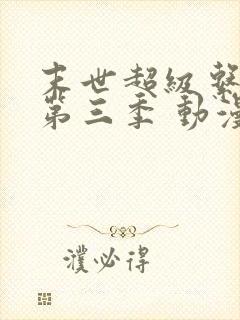 末世超級
第三季 動漫
濮必得